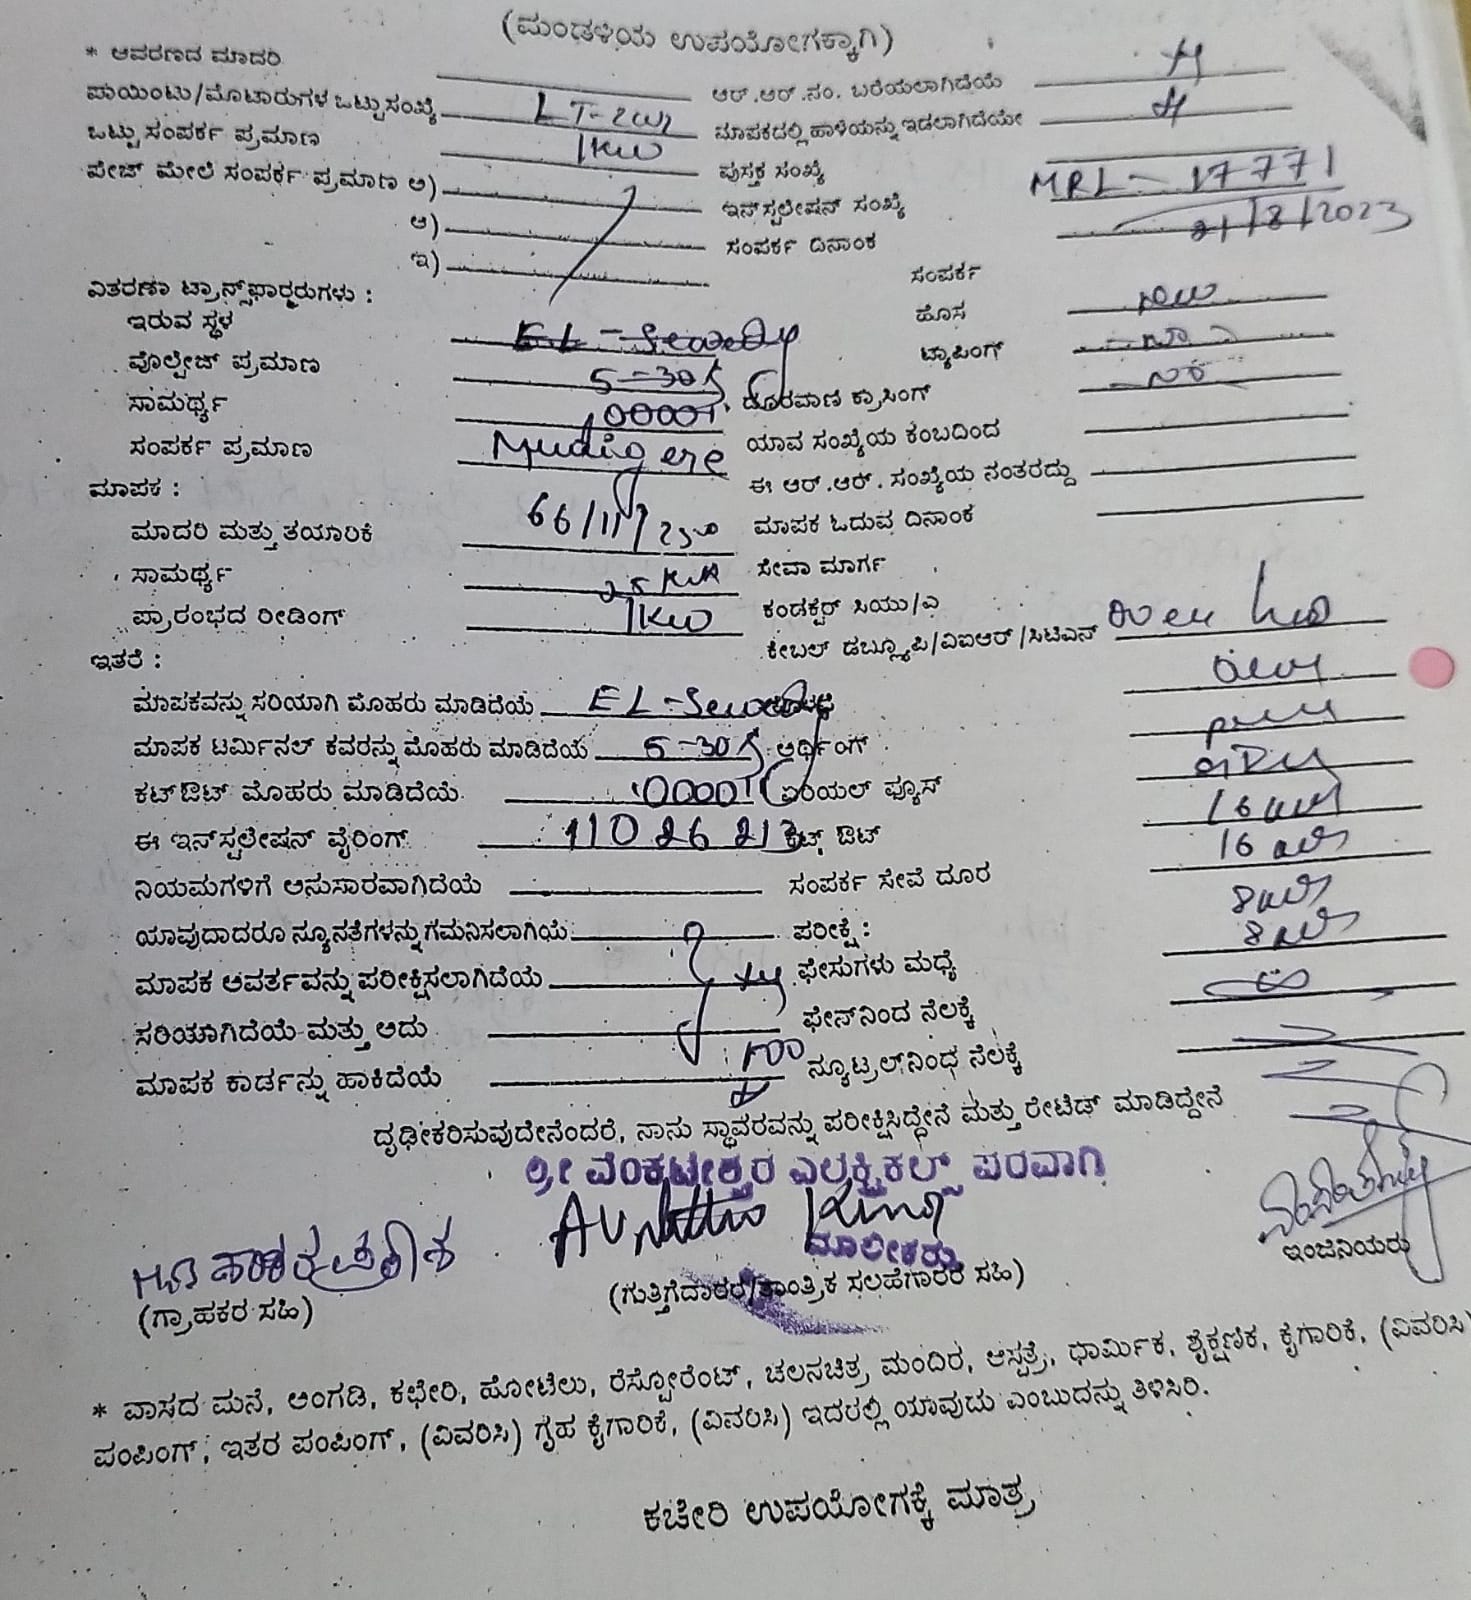 (ಮಂಡಳಿಯ ಉಪಯೋಗಕ್ಕಾಗಿ)
* ಆವರಣದ ಮಾದರಿ
ಆರ್.ಆರ್.ನಂ. ಬರೆಯಲಾಗಿದೆಯೆ
ಪಾಯಿಂಟು/ಮೋಟಾರುಗಳ ಒಟ್ಟು ಸಂಖ್ಯೆ LT-2
ಮಾಪಕದಲ್ಲಿ ಹಾಳೆಯನ್ನು ಇಡಲಾಗಿದೆಯೇ
ಒಟ್ಟು ಸಂಪರ್ಕ ಪ್ರಮಾಣ 1KW
ಪುಸ್ತಕ ಸಂಖ್ಯೆ
ಪೇಜ್ ಮೇಲೆ ಸಂಪರ್ಕ ಪ್ರಮಾಣ ಅ)
ಇನ್‌ಸ್ಟಲೇಷನ್ ಸಂಖ್ಯೆ MRL-17771
ಆ)
ಸಂಪರ್ಕ ದಿನಾಂಕ 21/8/2023
ಇ)
ಸಂಪರ್ಕ
ವಿತರಣಾ ಟ್ರಾನ್ಸ್‌ಫಾರ್ಮರುಗಳು :
ಇರುವ ಸ್ಥಳ
ಹೊಸ new
ವೊಲ್ಟೇಜ್ ಪ್ರಮಾಣ 5-30
ಟ್ಯಾಪಿಂಗ್
ಸಾಮರ್ಥ್ಯ 00001
ದೂರವಾಣಿ ಕ್ರಾಸಿಂಗ್
ಸಂಪರ್ಕ ಪ್ರಮಾಣ Mudigere
ಯಾವ ಸಂಖ್ಯೆಯ ಕಂಬದಿಂದ
ಮಾಪಕ :
ಈ ಆರ್.ಆರ್. ಸಂಖ್ಯೆಯ ನಂತರದ್ದು
ಮಾದರಿ ಮತ್ತು ತಯಾರಿಕೆ 66/11/
ಮಾಪಕ ಓದುವ ದಿನಾಂಕ
ಸಾಮರ್ಥ್ಯ 25 KVA
ಸೇವಾ ಮಾರ್ಗ
ಪ್ರಾರಂಭದ ರೀಡಿಂಗ್ 1KW
ಕಂಡಕ್ಟರ್ ಸಿಯು/ಎ
ಇತರೆ :
ಕೇಬಲ್ ಡಬ್ಲ್ಯೂಪಿ/ವಿಐಆರ್/ಸಿಟಿಎಸ್ over
ಮಾಪಕವನ್ನು ಸರಿಯಾಗಿ ಮೊಹರು ಮಾಡಿದೆಯೆ EL-Sewedy
ಮಾಪಕ ಟರ್ಮಿನಲ್ ಕವರನ್ನು ಮೊಹರು ಮಾಡಿದೆಯೆ 5-30 ಅರ್ಥಿಂಗ್
ಕಟ್ ಔಟ್ ಮೊಹರು ಮಾಡಿದೆಯೆ 00001 ಏರಿಯಲ್ ಫ್ಯೂಸ್
ಈ ಇನ್‌ಸ್ಟಲೇಷನ್ ವೈರಿಂಗ್ 11026213 ಕಟ್ ಔಟ್ 16
ನಿಯಮಗಳಿಗೆ ಅನುಸಾರವಾಗಿದೆಯೆ
ಸಂಪರ್ಕ ಸೇವೆ ದೂರ 16
ಯಾವುದಾದರೂ ನ್ಯೂನತೆಗಳನ್ನು ಗಮನಿಸಲಾಗಿಯೆ
ಪರೀಕ್ಷೆ :
ಮಾಪಕ ಅವರ್ತವನ್ನು ಪರೀಕ್ಷಿಸಲಾಗಿದೆಯೆ
ಫೇಸುಗಳು ಮಧ್ಯೆ
ಸರಿಯಾಗಿದೆಯೆ ಮತ್ತು ಅದು
ಫೇಸ್‌ನಿಂದ ನೆಲಕ್ಕೆ
ಮಾಪಕ ಕಾರ್ಡನ್ನು ಹಾಕಿದೆಯೆ
ನ್ಯೂಟ್ರಲ್‌ನಿಂಧ ನೆಲಕ್ಕೆ
ದೃಢೀಕರಿಸುವುದೇನೆಂದರೆ, ನಾನು ಸ್ಥಾವರವನ್ನು ಪರೀಕ್ಷಿಸಿದ್ದೇನೆ ಮತ್ತು ರೇಟೆಡ್ ಮಾಡಿದ್ದೇನೆ
ಶ್ರೀ ವೆಂಕಟೇಶ್ವರ ಎಲೆಕ್ಟ್ರಿಕಲ್ಸ್ ಪರವಾಗಿ
ಮಾಲೀಕರು
ಇಂಜಿನಿಯರು
(ಗ್ರಾಹಕರ ಸಹಿ)
(ಗುತ್ತಿಗೆದಾರರ/ತಾಂತ್ರಿಕ ಸಲಹೆಗಾರರ ಸಹಿ)
* ವಾಸದ ಮನೆ, ಅಂಗಡಿ, ಕಛೇರಿ, ಹೋಟೆಲು, ರೆಸ್ಟೋರೆಂಟ್, ಚಲನಚಿತ್ರ ಮಂದಿರ, ಆಸ್ಪತ್ರೆ, ಧಾರ್ಮಿಕ, ಶೈಕ್ಷಣಿಕ, ಕೈಗಾರಿಕೆ, (ವಿವರಿಸಿ)
ಪಂಪಿಂಗ್, ಇತರ ಪಂಪಿಂಗ್, (ವಿವರಿಸಿ) ಗೃಹ ಕೈಗಾರಿಕೆ, (ವಿವರಿಸಿ) ಇದರಲ್ಲಿ ಯಾವುದು ಎಂಬುದನ್ನು ತಿಳಿಸಿರಿ.
ಕಚೇರಿ ಉಪಯೋಗಕ್ಕೆ ಮಾತ್ರ